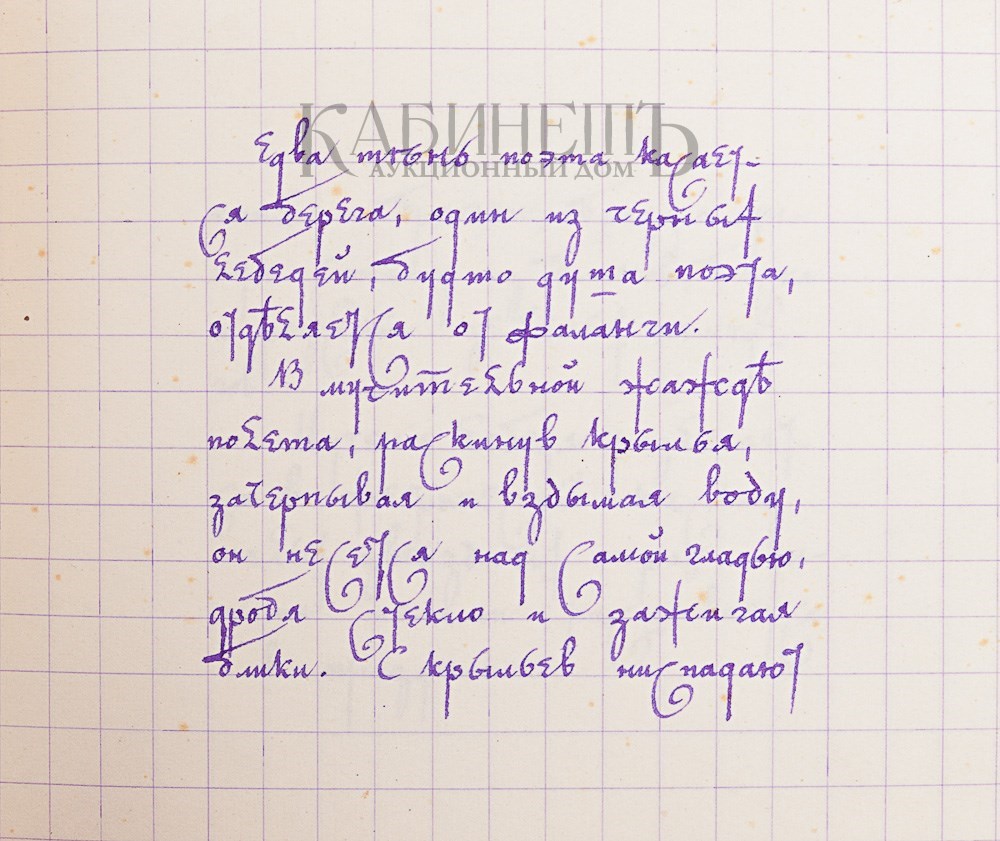 КАБИНЕТЪ
АУКЦИОННЫЙ ДОМ
Едва тѣнь поэта касает-
ся берега, один из черных
лебедей, будто душа поэта,
отдѣляется от фаланги.
В мучительной жаждѣ
полета, раскинув крылья,
зачерпывая и вздымая воду,
он несется над самой гладью,
дробя стекло и зажигая
блики. С крыльев ниспадают